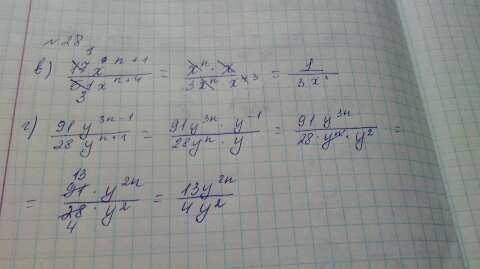 №28
в) 17x^{n+1}/51x^{n+4} = x^n · x/3x^n · x^{4 3} = 1/3x^3
1
3
г) 91y^{3n-1}/28y^{n+1} = 91y^{3n} · y^{-1}/28y^n · y = 91y^{3n}/28 · y^n · y^2 =
= 91 · y^{2n}/28 · y^2 = 13y^{2n}/4y^2
13
4